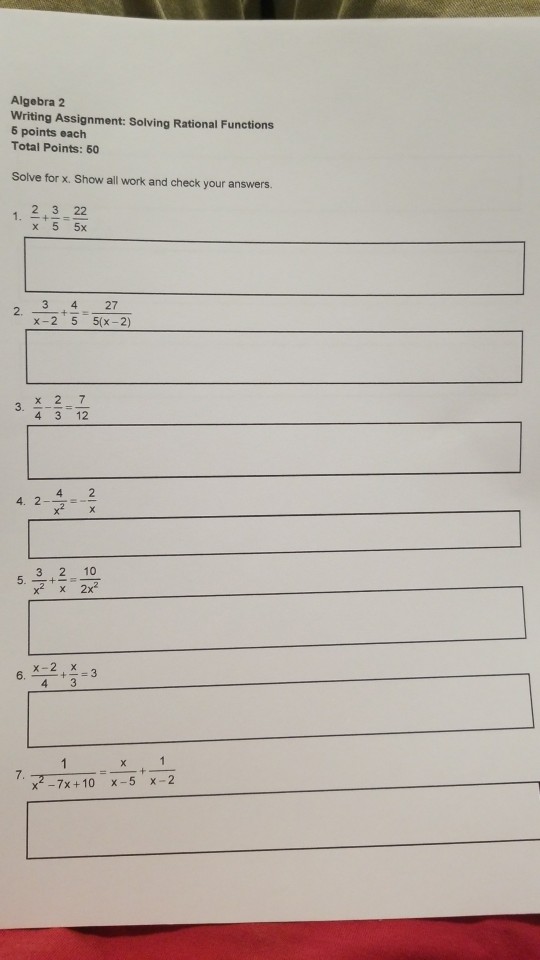 Algebra 2
Writing Assignment: Solving Rational Functions
5 points each
Total Points: 50
Solve for x. Show all work and check your answers.
1. 2/x + 3/5 = 22/5x
2. 3/(x-2) + 4/5 = 27/5(x-2)
3. x/4 - 2/3 = 7/12
4. 2 - 4/x² = -2/x
5. 3/x² + 2/x = 10/2x²
6. (x-2)/4 + x/3 = 3
7. 1/(x² - 7x + 10) = x/(x-5) + 1/(x-2)